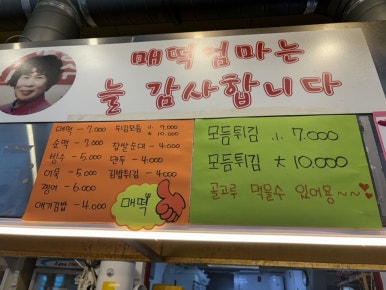 매떡엄마는
늘 감사합니다
매떡 - 7,000
순떡 - 7,000
빙수 - 5,000
어묵 - 5,000
- 6,000
애기김밥 - 4,000
튀김모듬 小 7,000
大 10,000
찹쌀순대 - 4,000
만두 - 4,000
김밥튀김 - 4,000
매떡
모듬튀김 小 7,000
모듬튀김 大 10,000
골고루 먹을수 있어용~~♥